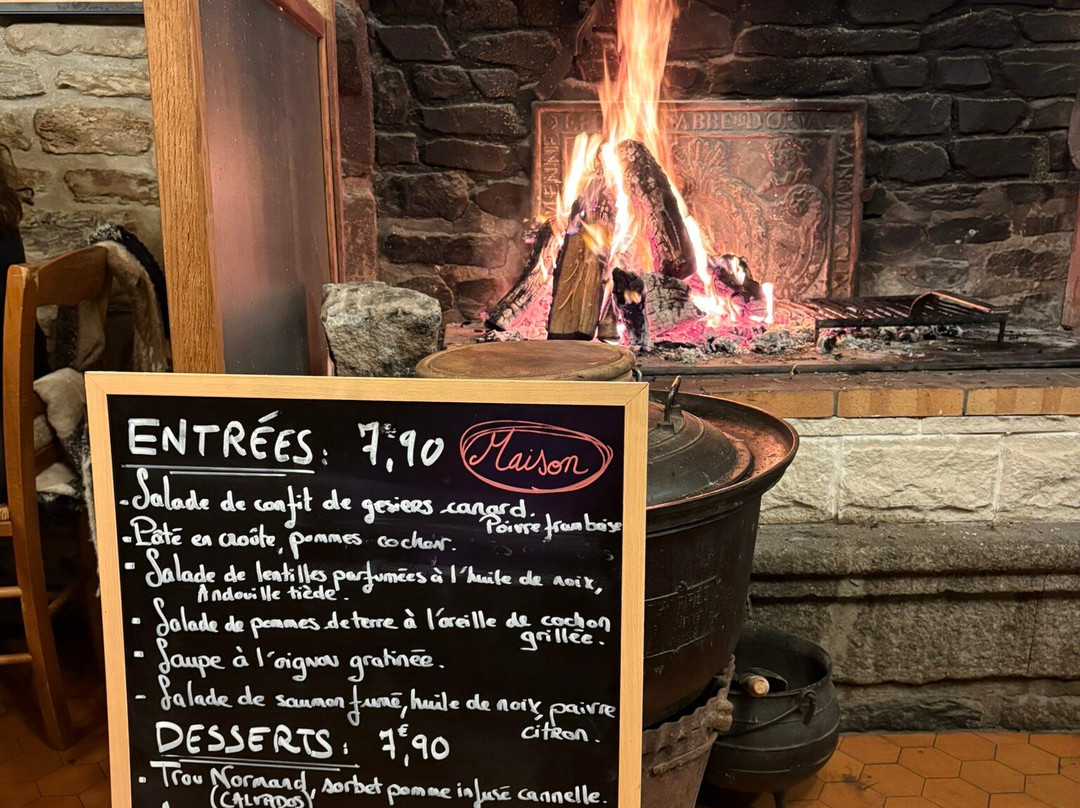 ENTRÉES: 7,90 Maison
- Salade de confit de gesiers canard.
Poivre framboise
- Pâté en croûte, pommes cochon.
- Salade de lentilles parfumées à l'huile de noix,
Andouille tiède.
- Salade de pommes de terre à l'oreille de cochon
grillée.
- Soupe à l'oignon gratinée.
- Salade de saumon fumé, huile de noix poivre
citron.
DESSERTS: 7€,90
- Trou Normand, sorbet pomme infusé cannelle.
(CALVADOS)